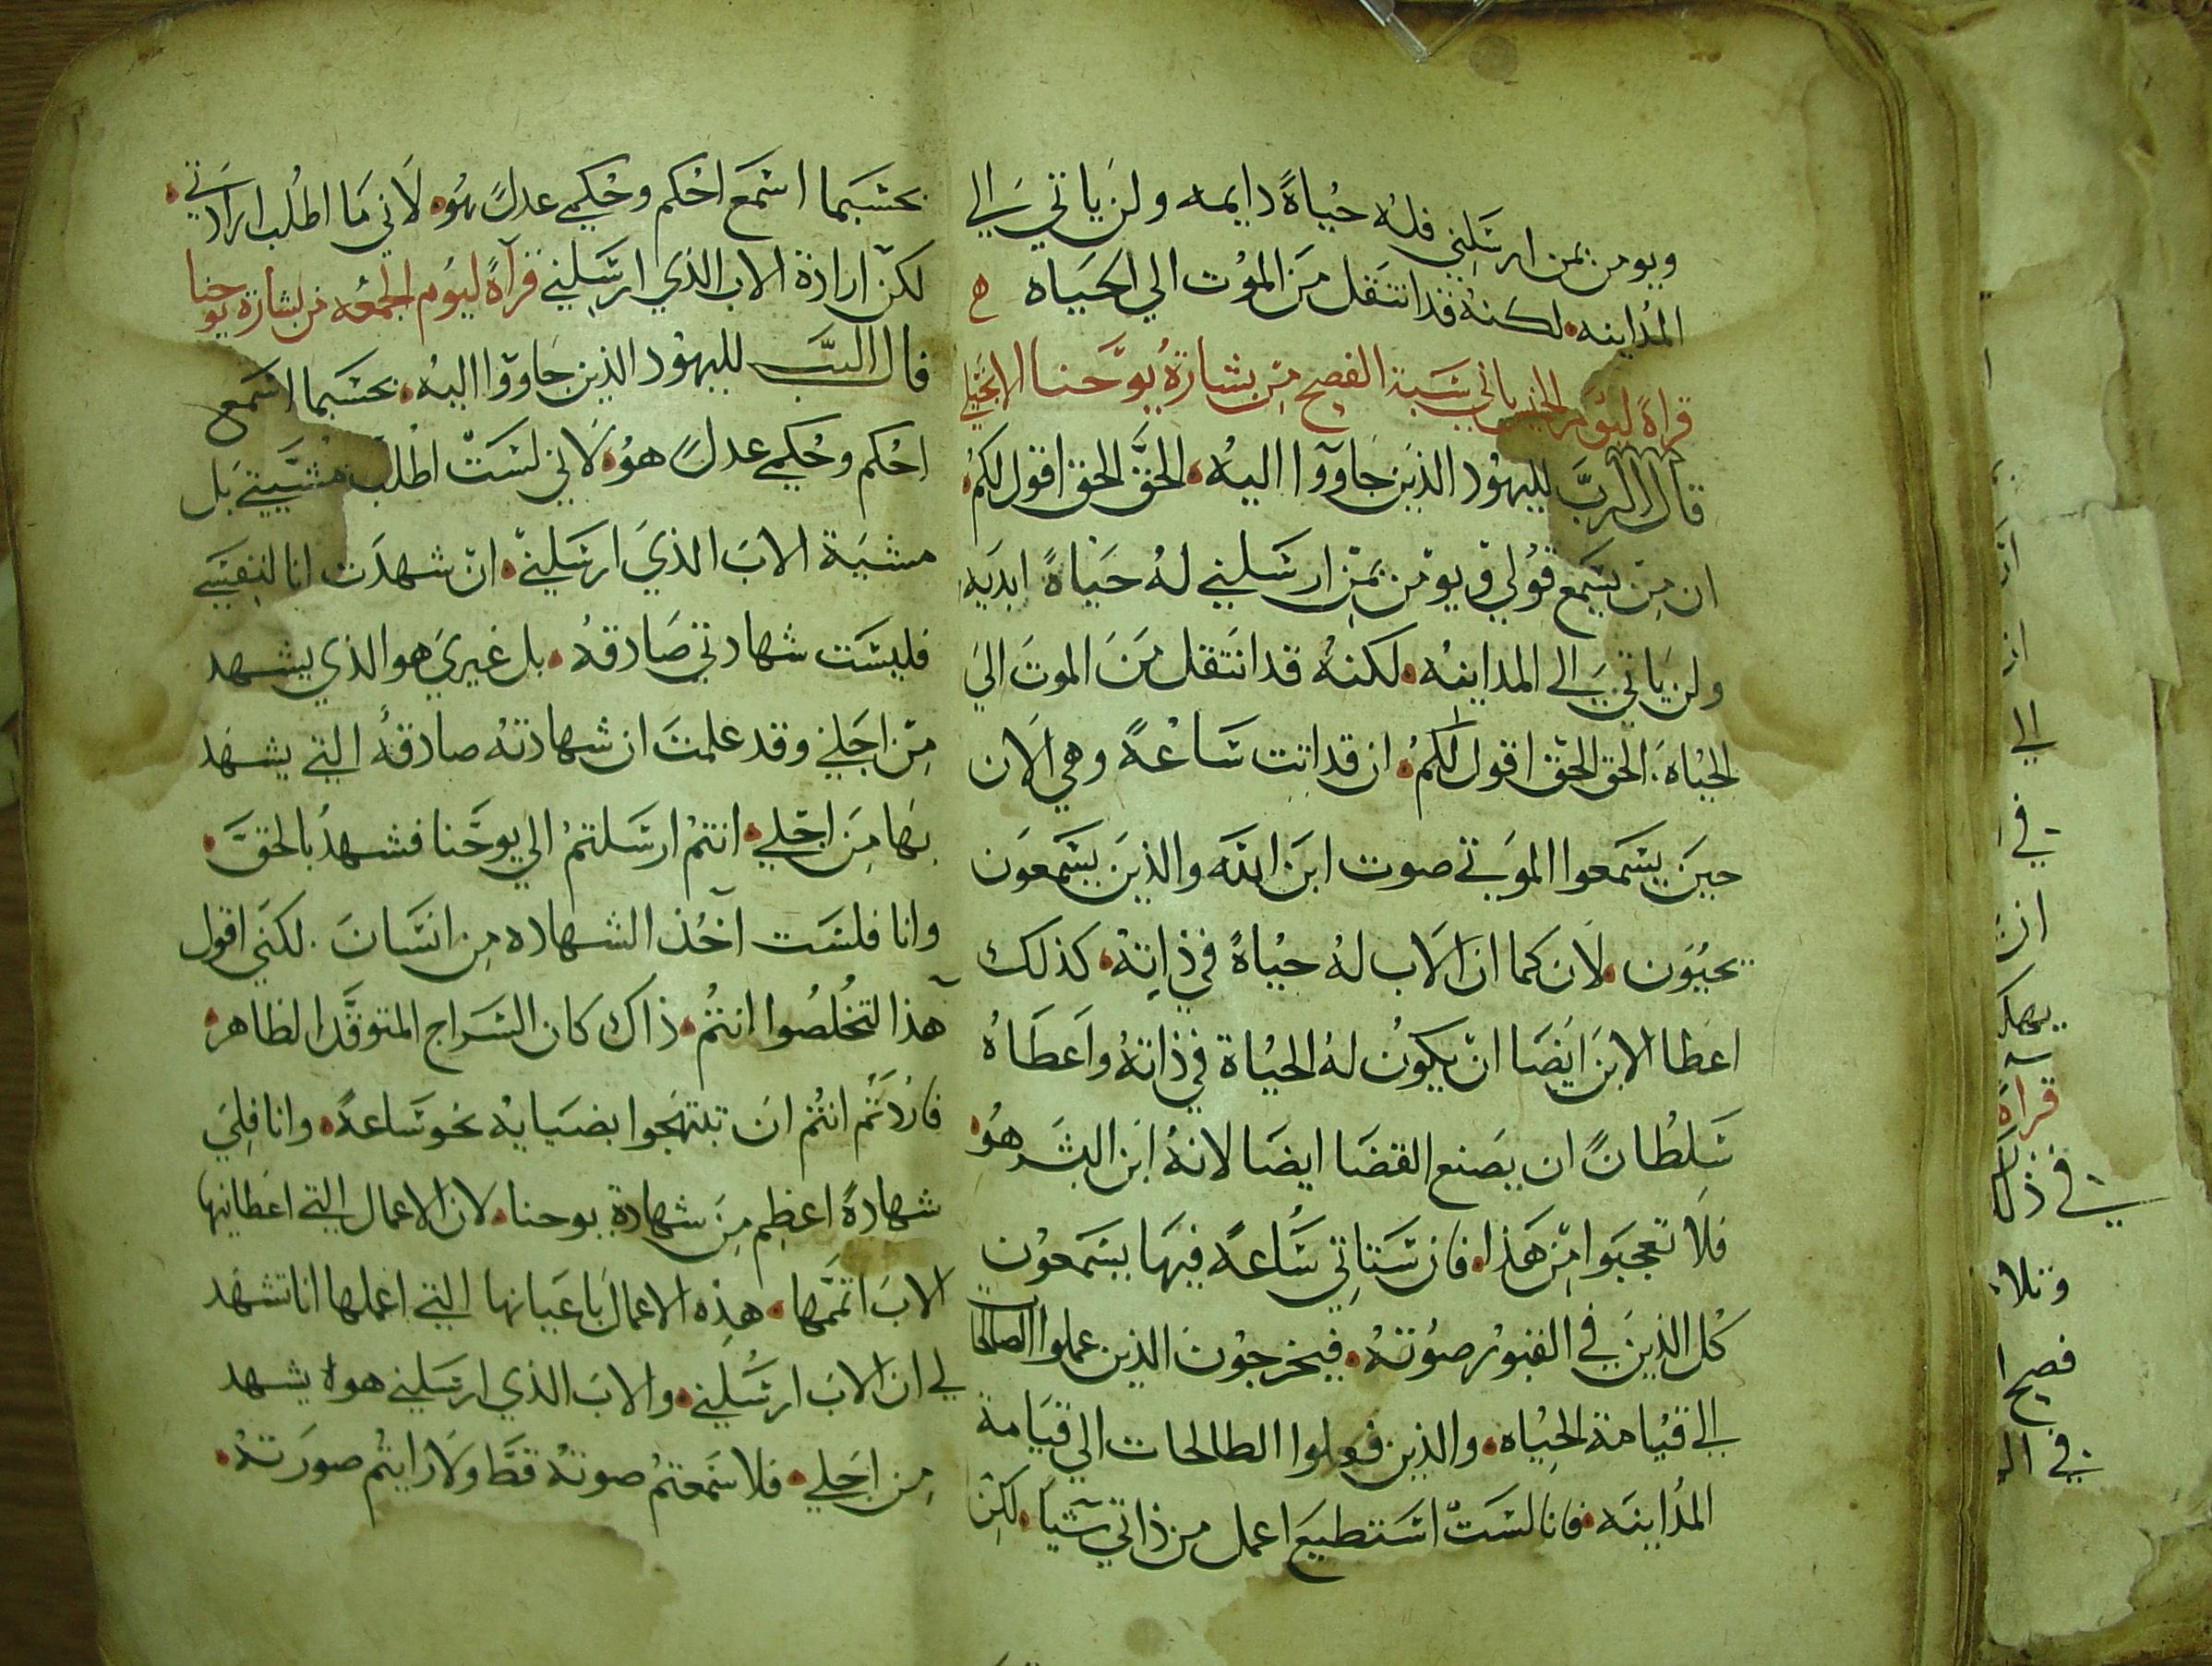 ويومن بمن ارسلني فله حياة دايمه ولن ياتي الي
المداينه لكنه قد انتقل من الموت الي الحياه ه
قراة ليوم الخميس ثاني سبة الفصح من بشارة يوحنا الانجيلي
قال الرب لليهود الذين جاووا اليه الحق الحق اقول لكم
ان من يسمع قولي ويومن بمن ارسلني له حياة ابديه
ولن ياتي الي المداينه لكنه قد انتقل من الموت الي
الحياه الحق الحق اقول لكم ان قد اتت ساعة وهي الان
حين يسمعوا الموتي صوت ابن الله والذين يسمعون
يحيون لان كما ان الاب له حياة في ذاته كذلك
اعطا الابن ايضا ان يكون له الحياة في ذاته واعطاه
سلطانا ان يصنع القضا ايضا لانه ابن البشر هو
فلا تعجبوا من هذا فان ستاتي ساعة فيها يسمعون
كل الذين في القبور صوته فيخرجون الذين عملوا الصالحات
الي قيامة الحياه والذين فعلوا الطالحات الي قيامة
المداينه فانا لست استطيع اعمل من ذاتي شيا لكن
بحسبما اسمع احكم وحكمي عدل هو لاني ما اطلب ارادتي
لكن ارادة الاب الذي ارسلني قراة ليوم الجمعه من بشارة يوحنا
قال الرب لليهود الذين جاووا اليه بحسبما اسمع
احكم وحكمي عدل هو لاني لست اطلب مشيتي بل
مشية الاب الذي ارسلني ان شهدت انا لنفسي
فليست شهادتي صادقه بل غيري هو الذي يشهد
من اجلي وقد علمت ان شهادته صادقه التي يشهد
بها من اجلي انتم ارسلتم الي يوحنا فشهد بالحق
وانا فلست آخذ الشهاده من انسان لكني اقول
هذا لتخلصوا انتم ذاك كان السراج المتوقد الظاهر
فاردتم انتم ان تبتهجوا بضيايه نحو ساعة وانا فلي
شهادة اعظم من شهادة يوحنا لان الاعمال التي اعطانيها
الاب اتممها هذه الاعمال باعيانها التي اعملها انا تشهد
لي ان الاب ارسلني والاب الذي ارسلني هو يشهد
من اجلي فلا سمعتم صوته قط ولا رايتم صورته
الي
في
ان
قراة
في ذلك
وتلا
فصح
في